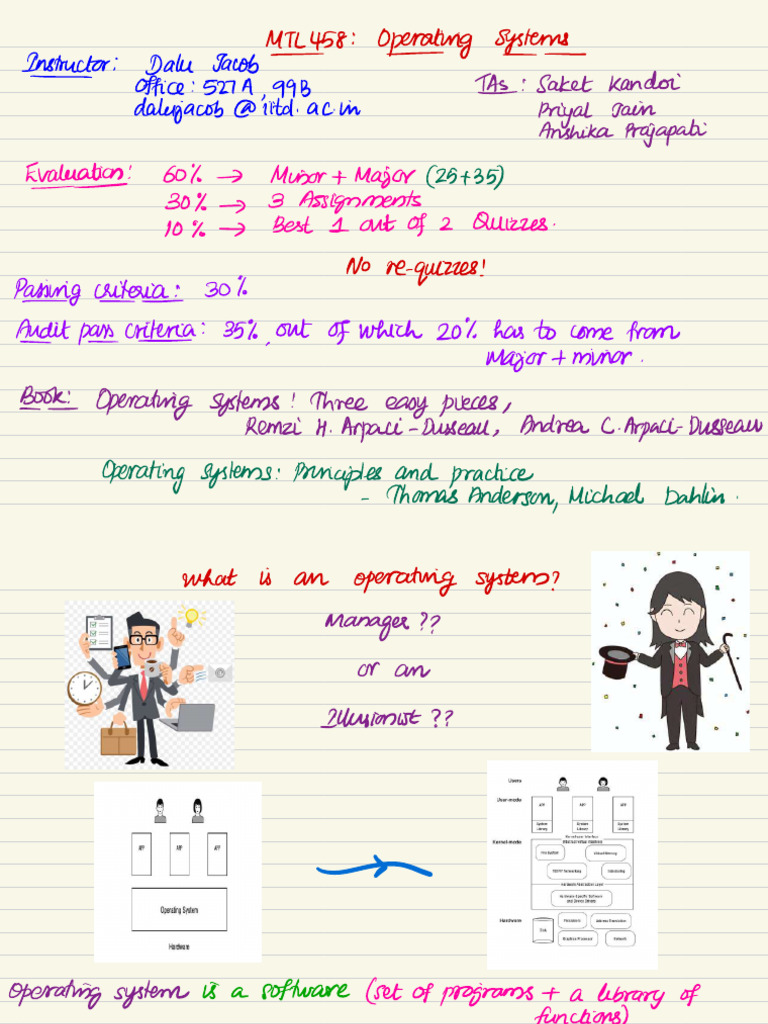 MTL458: Operating Systems
Instructor: Dalu Jacob
Office: 527A, 99B
dalujacob@iitd.ac.in
TAs: Saket Kandoi
Priyal Jain
Anshika Prajapati
Evaluation: 60% → Minor + Major (25+35)
30% → 3 Assignments
10% → Best 1 out of 2 Quizzes.
No re-quizzes!
Passing criteria: 30%
Audit pass criteria: 35%, out of which 20% has to come from
Major + minor.
Book: Operating systems: Three easy pieces,
Remzi H. Arpaci-Dusseau, Andrea C. Arpaci-Dusseau
Operating systems: Principles and practice
- Thomas Anderson, Michael Dahlin.
What is an operating system?
Manager ??
or an
Illusionist ??
APP APP APP
Operating System
Hardware
Users
User-mode
APP APP APP
System Library System Library System Library
Kernel-mode
File System Virtual Memory
TCP/IP Networking Scheduling
Hardware Abstraction Layer
Hardware-Specific Software
and Device Drivers
Hardware
Processors Address Translation
Disk
Graphics Processor Network
Operating system is a software (set of programs + a library of
functions)